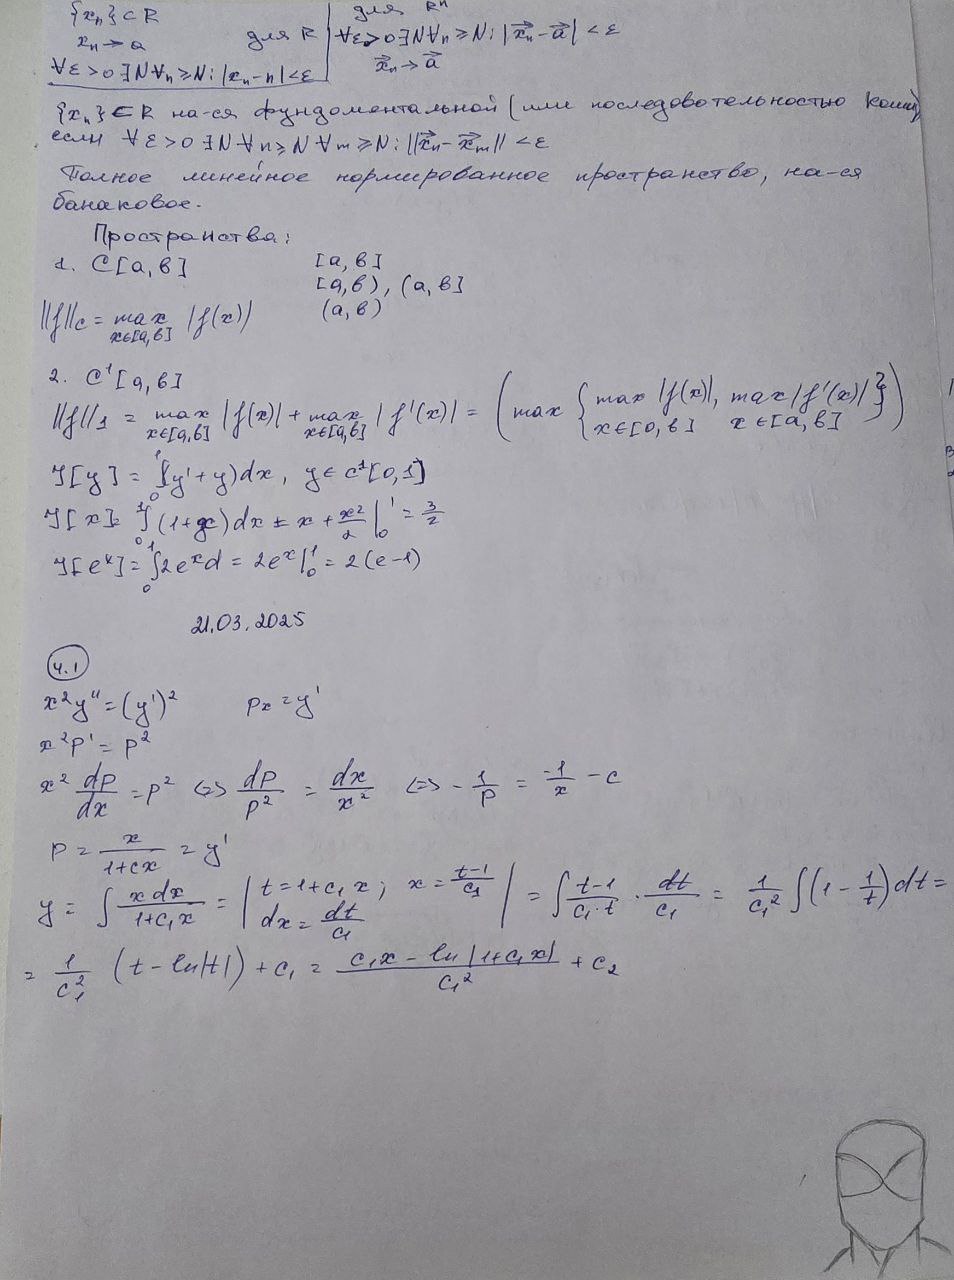 {xₙ} ⊂ R
xₙ → a для R
∀ε>0 ∃N ∀n ≥ N: |xₙ - n| < ε
для Rⁿ
∀ε>0 ∃N ∀n ≥ N: |x⃗ₙ - a⃗| < ε
x⃗ₙ → a⃗
{xₙ} ⊂ R на-ся фундоментальной (или последовотельностью Коши)
если ∀ε>0 ∃N ∀n ≥ N ∀m ≥ N: ||x⃗ₙ - x⃗ₘ|| < ε
Полное линейное нормированное пространство, на-ся
банаковое.
Пространства:
1. C[a, в] [a, в]
[a, в), (a, в]
||f||c = max x∈[a,в] |f(x)| (a, в)
2. C¹[a, в]
||f||₁ = max x∈[a,в] |f(x)| + max x∈[a,в] |f'(x)| = (max {max x∈[0,в] |f(x)|, max x∈[a,в] |f'(x)|})
J[y] = ∫₀¹(y' + y)dx, y ∈ c¹[0, 1]
J[x] = ∫₀¹ (1+x)dx = x + x²/2 |₀¹ = 3/2
J[eˣ] = ∫₀¹ 2eˣd = 2eˣ|₀¹ = 2(e-1)
21.03.2025
4.1
x²y'' = (y')² px = y'
x²p' = p²
x² dp/dx = p² <=> dp/p² = dx/x² <=> -1/p = -1/x - c
p = x/(1+cx) = y'
y = ∫ x dx/(1+c₁x) = | t = 1+c₁x; x = (t-1)/c₁ dx = dt/c₁ | = ∫ (t-1)/(c₁·t) · dt/c₁ = 1/c₁² ∫(1 - 1/t)dt =
= 1/c₁² (t - ln|t|) + c₁ = (c₁x - ln|1+c₁x|)/c₁² + c₂